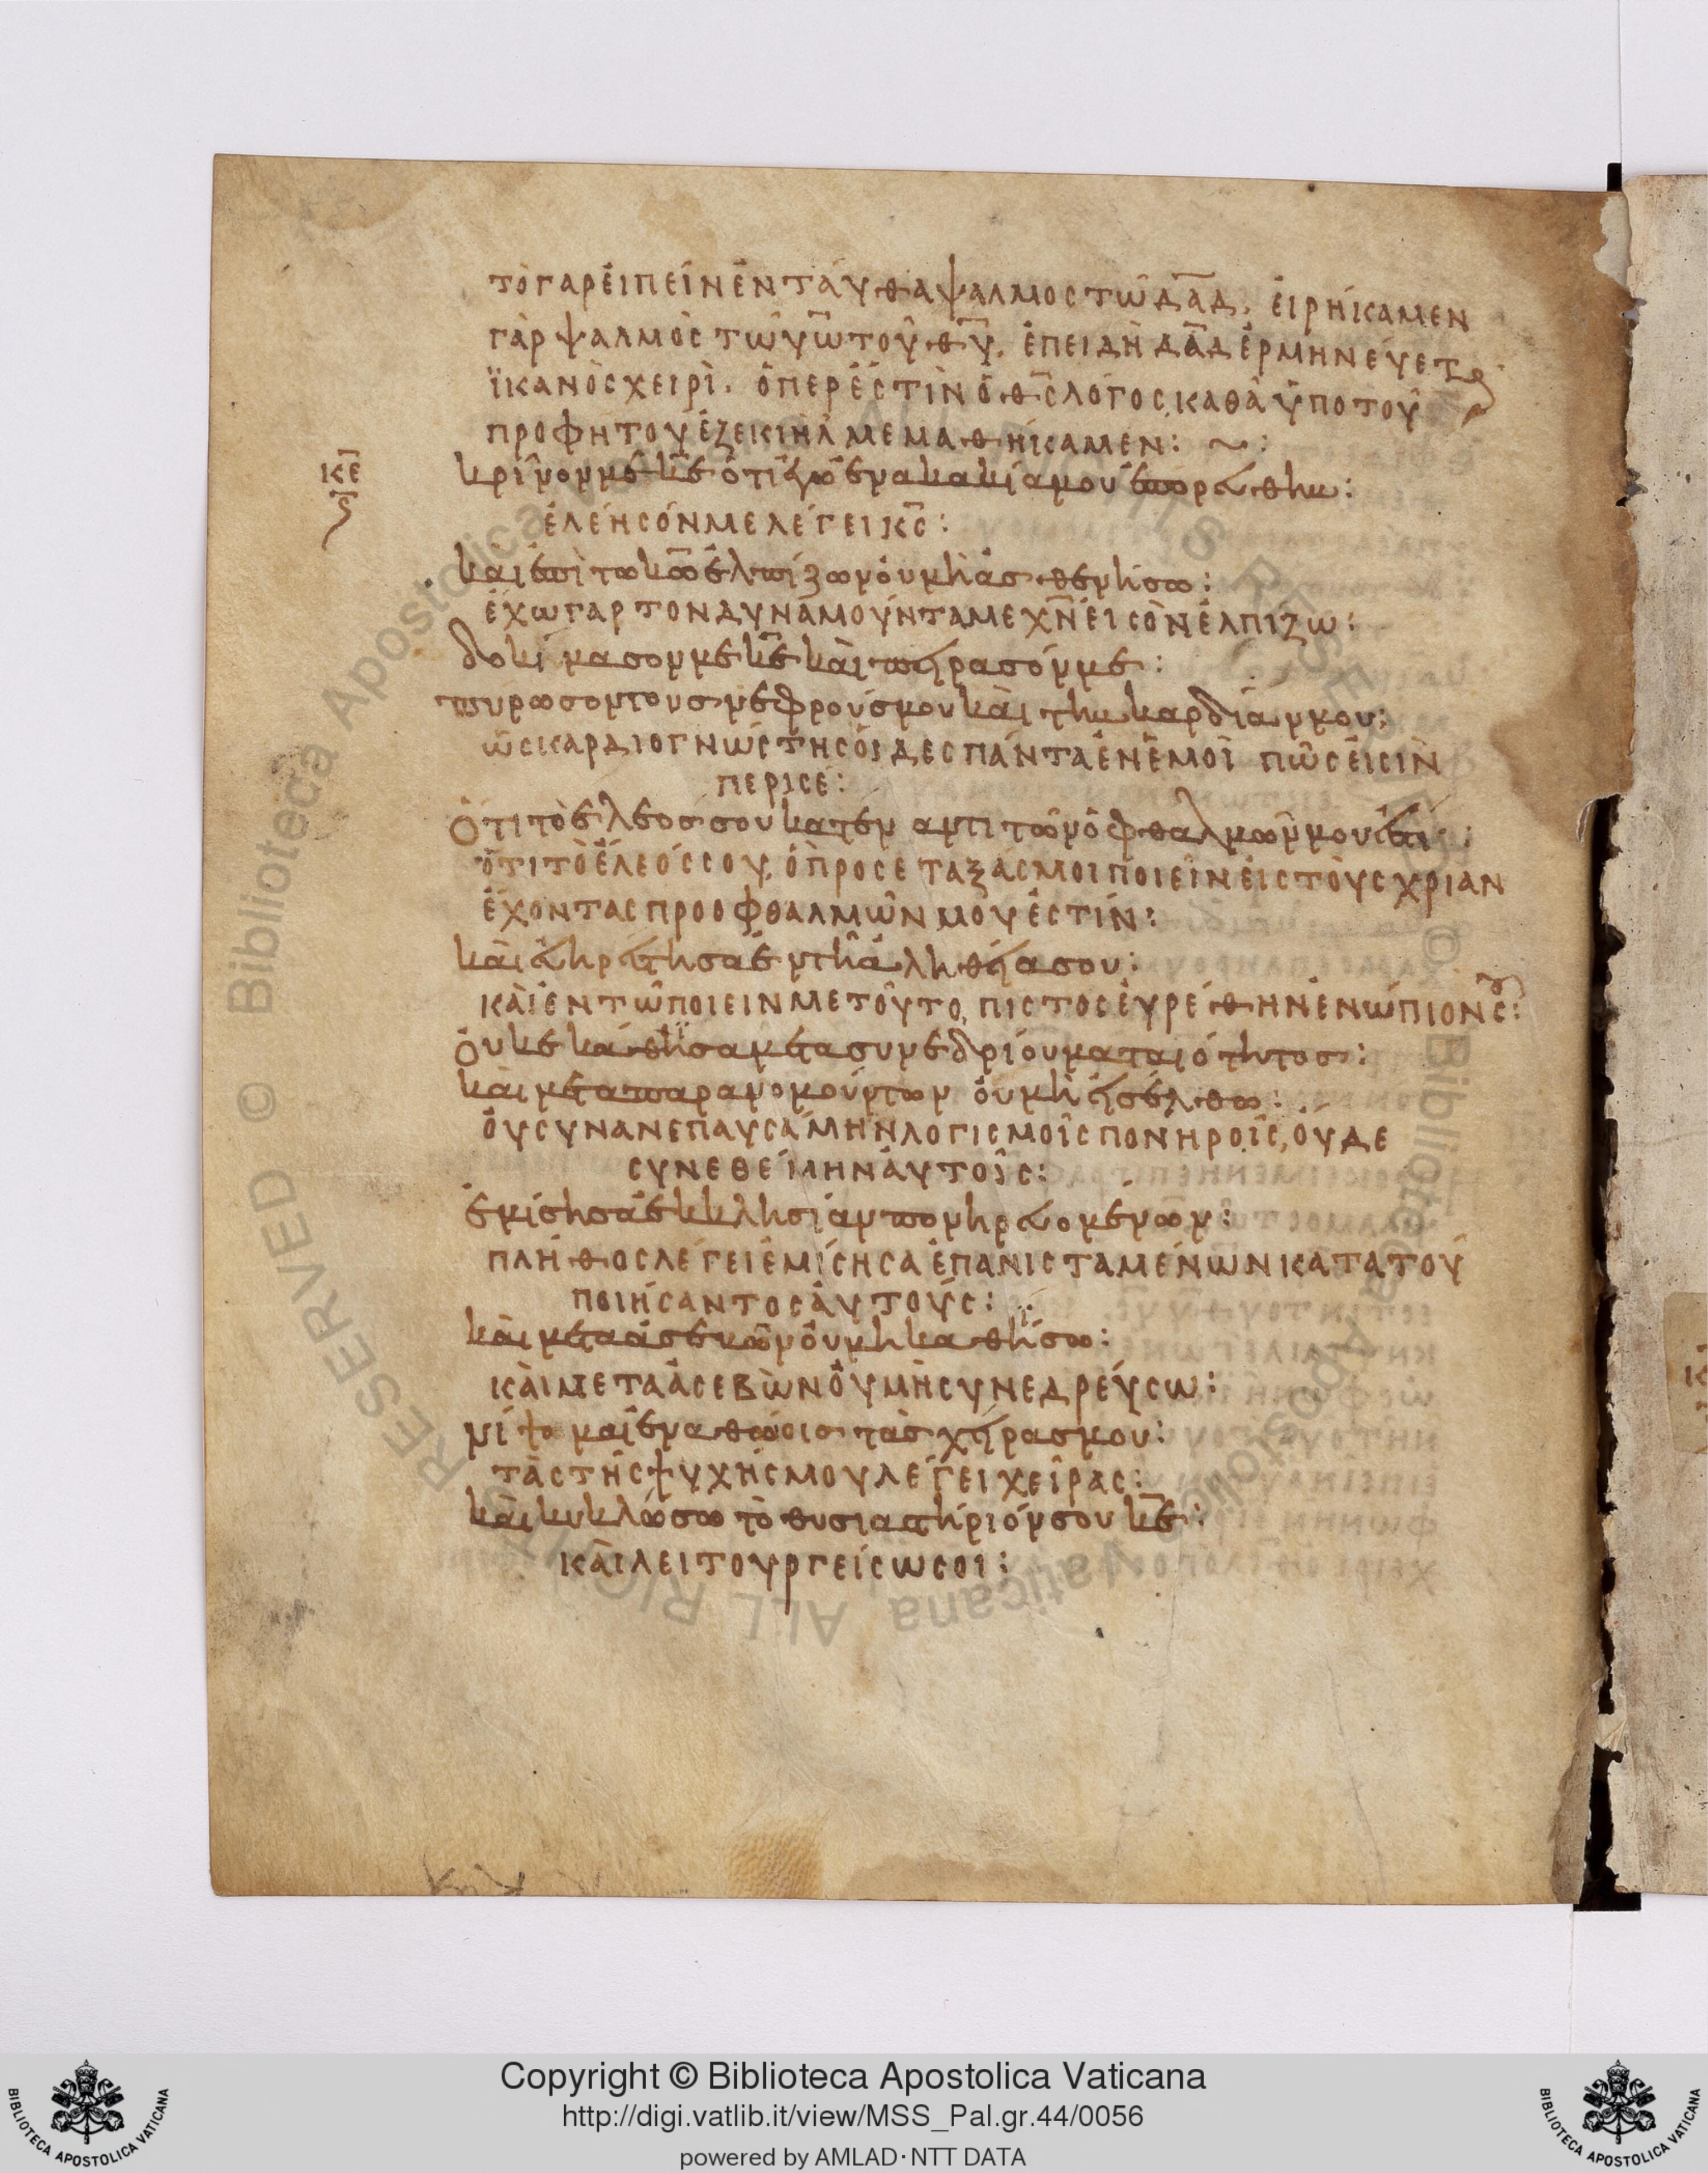 τὸ γὰρ ἐιπεῖν ἐνταύθα ψαλμος τῶ δᾱδ, ἐιρήκαμεν
γὰρ ψαλμὸς τῶ υω̅ τοῦ θυ̅, ἐπειδὴ δᾱδ ἑρμηνέυεται
ϊκανὸς χειρὶ. ὅπερ ἐστὶν ὁ θς̅ λόγος, καθὰ ὑπο τοῦ
προφήτου ἐζεκιὴλ μεμαθήκαμεν: ~:
κε̅
κρῖνον με κε̅ ὅτι ἐγὼ ἐν ακακία μου ἐπορεύθην:
ἐλέησόν με λέγει κς̅:
κὰι ἐπὶ τω κω̅ ἐλπίζων ὀυ μὴ ἀσθενήσω:
ἔχω γαρ τον δυναμοῦντα με χν̅ ἐις ὸν ἐλπίζω:
δοκίμασον με κε̅ κὰι πείρασόν με:
πυρωσον τους νεφρούς μου κὰι την καρδίαν μου:
ὡς καρδιογνώστης ὀίδες πάντα ἐν ἐμοὶ πῶς ἐισὶν
περι σέ:
Ὅτι τὸ ἔλεος σου κατεν αντι τῶν ὀφθαλμῶν μου ἐστι:
ὅτι τὸ ἔλεός σου, ὃ προσεταξάς μοι ποιεῖν ἐις τὸυς χρίαν
ἔχοντας προ οφθαλμῶν μόυ ἐστίν:
κὰι ἐυηρέστησα ἐν τῆ ἀληθεία σου:
κὰι ἐν τῶ ποιειν με τοῦτο, πιστος ἑυρέθην ἐνώπιον σου:
Ὀυκ εκάθϊσα μετα συνεδρίου ματαιότητος:
κὰι μετα παρανομούντων ὀυ μὴ ἐισέλθω:
ὀυ συνανεπαυσάμην λογισμοῖς πονηροῖς, ὀύδε
συνεθέμην ἀυτοῖς:
ἐμίσησα ἐκκλησίαν πονηρευομένων:
πλήθος λέγει ἐμίσησα ἐπανισταμένων κατα τοῦ
ποιήσαντος ἀυτούς:
κὰι μετα ἀσεβῶν ὀυ μη καθΐσω:
κὰι μετα ἀσεβὼν ὀυ μὴ συνεδρέυσω:
νίψομαι ἐν αθώοις τὰς χείρας μου:
τὰς τῆς ψυχῆς μου λέγει χεῖρας:
κὰι κυκλώσω τὸ θυσιαστήριόν σου κε̅:
κὰι λειτουργείσω σοι:
Copyright © Biblioteca Apostolica Vaticana
http://digi.vatlib.it/view/MSS_Pal.gr.44/0056
powered by AMLAD·NTT DATA
BIBLIOTECA APOSTOLICA VATICANA
BIBLIOTECA APOSTOLICA VATICANA